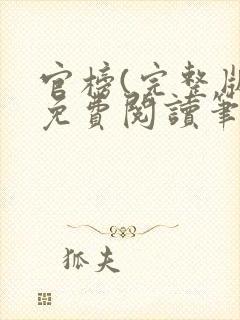 官榜(完整版
免費閱讀筆
狐夫